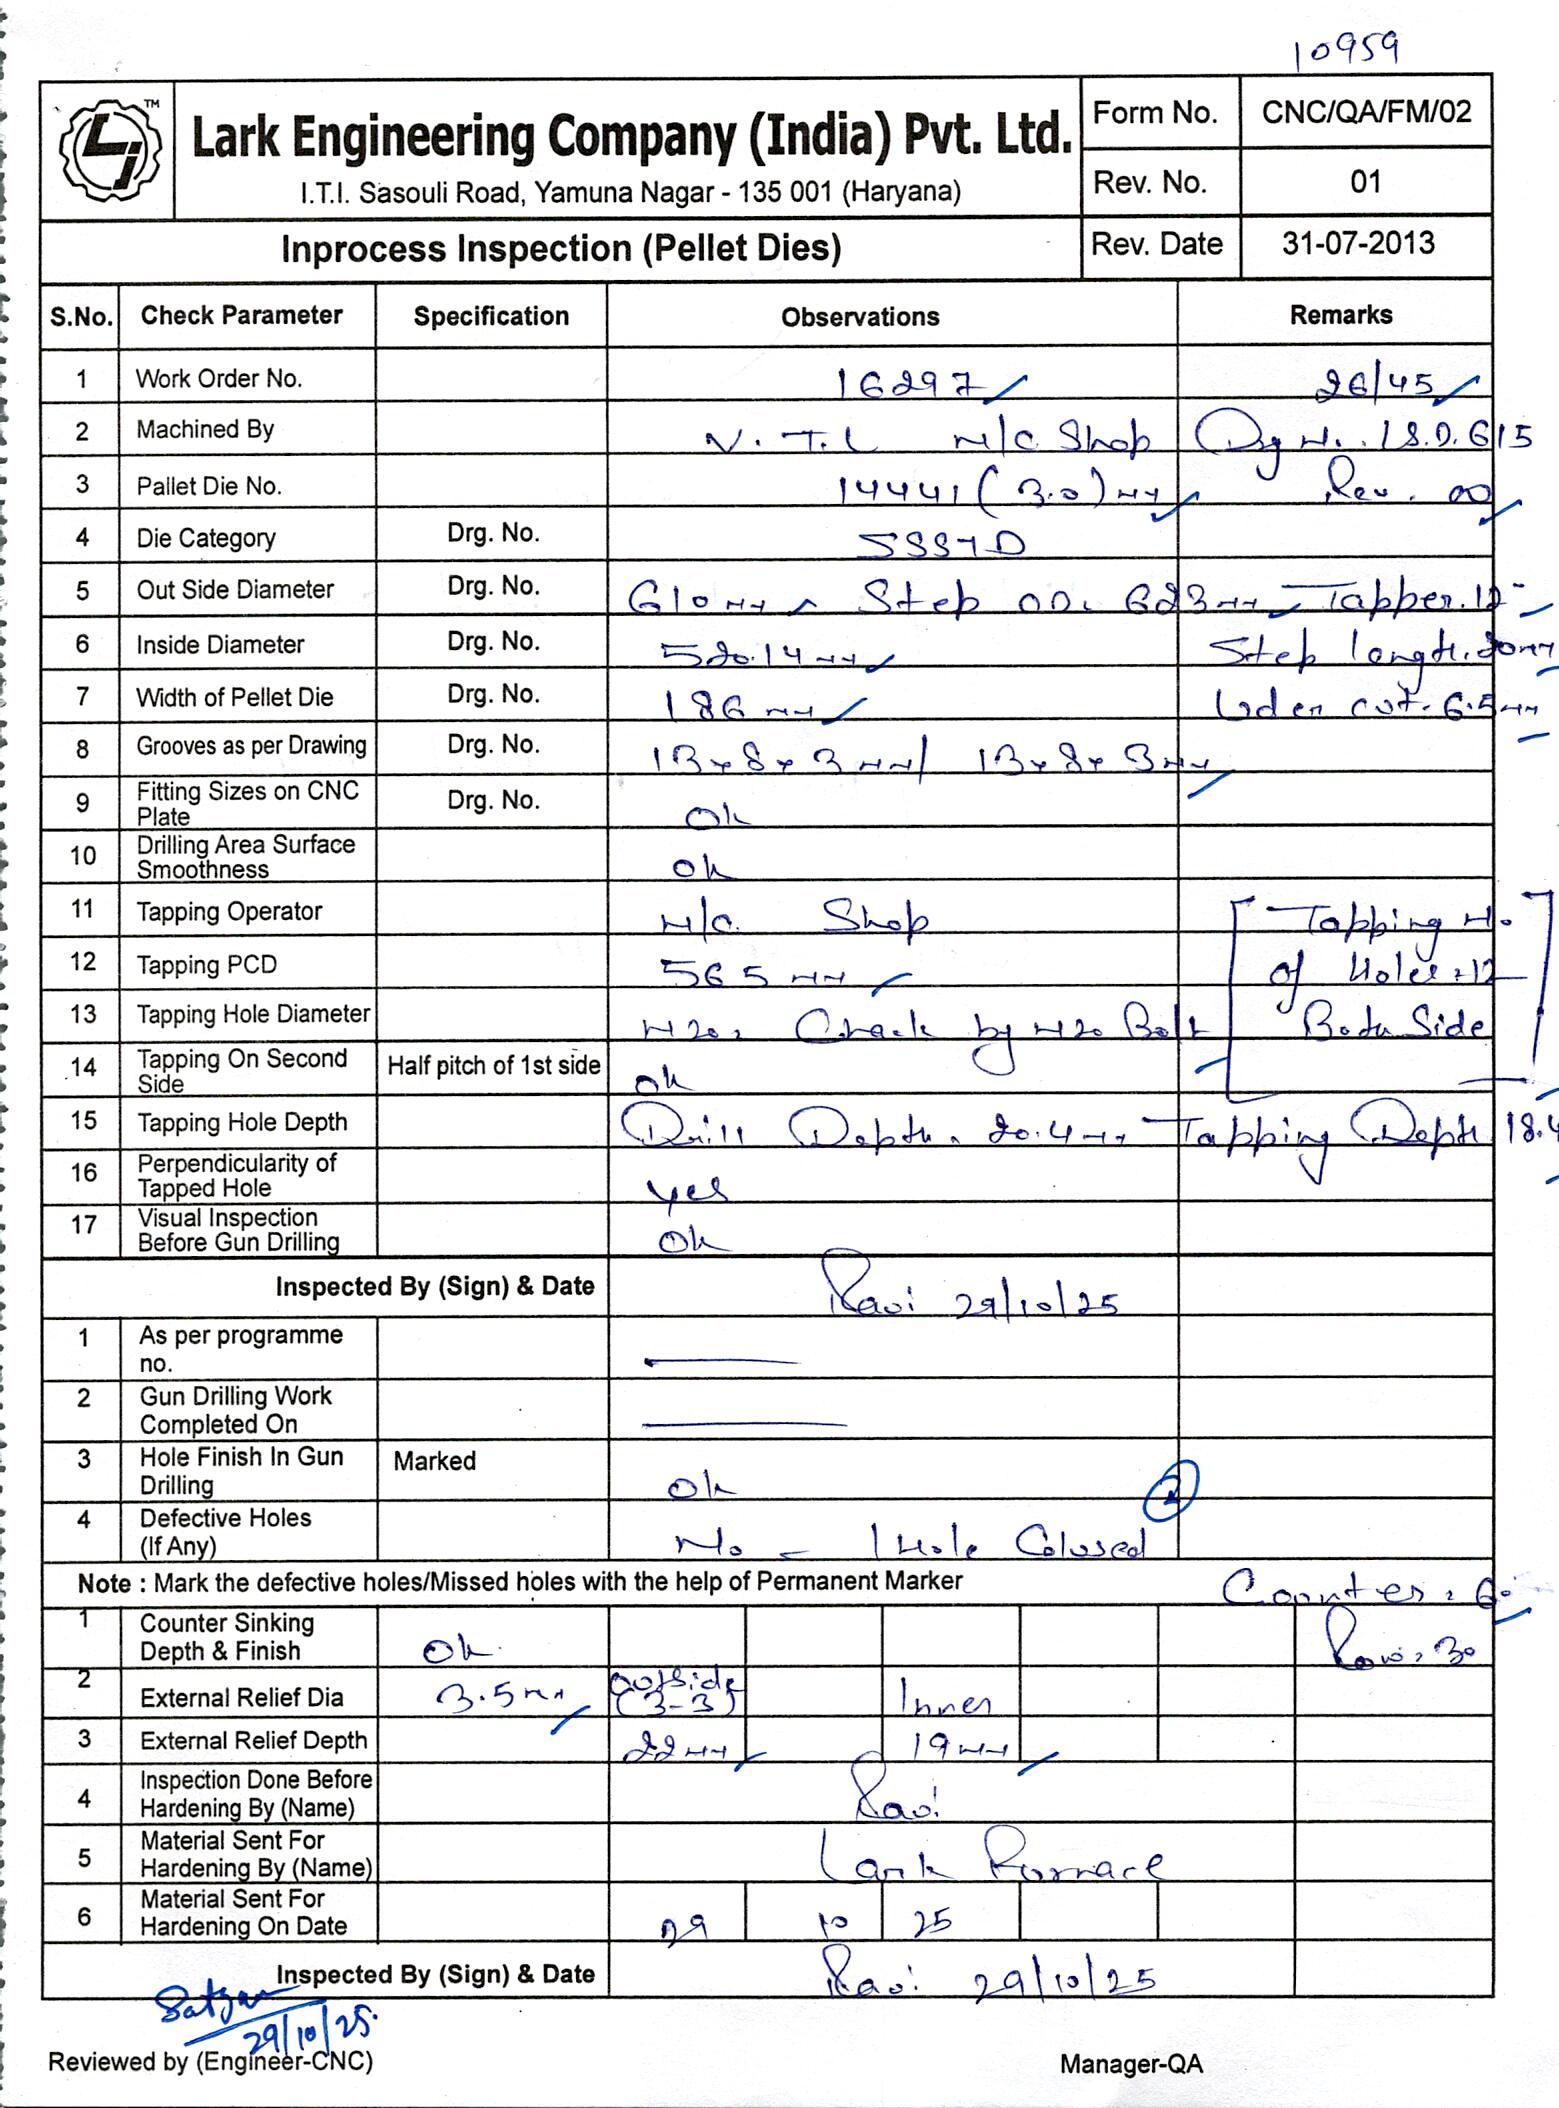 10959
Lark Engineering Company (India) Pvt. Ltd.
I.T.I. Sasouli Road, Yamuna Nagar - 135 001 (Haryana)
Form No. CNC/QA/FM/02
Rev. No. 01
Inprocess Inspection (Pellet Dies) Rev. Date 31-07-2013
S.No. Check Parameter Specification Observations Remarks
1 Work Order No. 16297 26/45
2 Machined By V.T.L M/C Shop Drg N..
3 Pallet Die No. 14441 (3.0) mm Rev. 00
4 Die Category Drg. No.
5 Out Side Diameter Drg. No. 610mm Step OD. 623mm Tapper.12
6 Inside Diameter Drg. No. 520.14mm Step length.20mm
7 Width of Pellet Die Drg. No. 186mm Uder cut. 6.5mm
8 Grooves as per Drawing Drg. No. 13x8x3mm/ 13x8x3mm
9 Fitting Sizes on CNC Plate Drg. No. Ok
10 Drilling Area Surface Smoothness Ok
11 Tapping Operator M/C. Shop Tapping N.
12 Tapping PCD 565 mm of Holes=12
13 Tapping Hole Diameter M20, Chack by M20 Bolt Both Side
14 Tapping On Second Side Half pitch of 1st side ok
15 Tapping Hole Depth Drill Depth. 20.4mm Tapping Depth 18.4
16 Perpendicularity of Tapped Hole yes
17 Visual Inspection Before Gun Drilling Ok
Inspected By (Sign) & Date Ravi 29/10/25
1 As per programme no.
2 Gun Drilling Work Completed On
3 Hole Finish In Gun Drilling Marked Ok
4 Defective Holes (If Any) No - 1 Hole Colused
Note : Mark the defective holes/Missed holes with the help of Permanent Marker Counter
1 Counter Sinking Depth & Finish Ok Ravi, 30
2 External Relief Dia 3.5mm outside (3-3) Inner
3 External Relief Depth 22mm 19mm
4 Inspection Done Before Hardening By (Name) Ravi
5 Material Sent For Hardening By (Name) Lark Furnace
6 Material Sent For Hardening On Date 29 10 25
Inspected By (Sign) & Date Ravi 29/10/25
29/10/25
Reviewed by (Engineer-CNC) Manager-QA